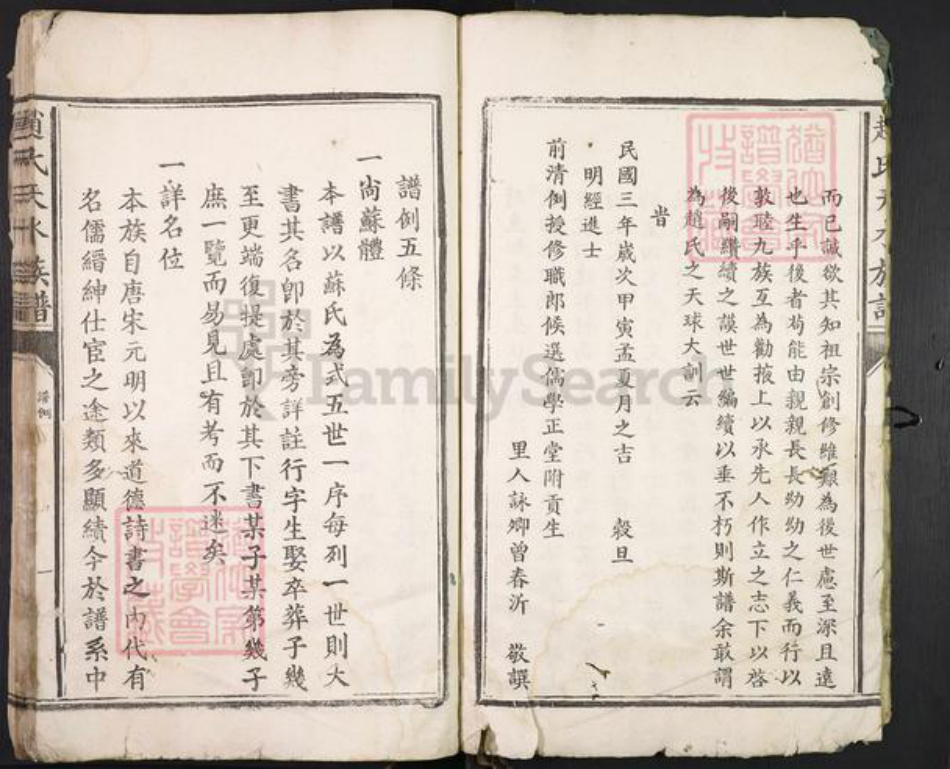 而已誠欲其知祖宗創修維艱為後世慮至深且遠
也生乎後者苟能由親親長長幼幼之仁義而行以
敦睦九族互為勸掖上以承先人作立之志下以啓
後嗣纘續之謨世世編續以垂不朽則斯譜余敢謂
為趙氏之天球大訓云
旹
民國三年歲次甲寅孟夏月之吉 穀旦
明經進士
前清例授修職郎候選儒學正堂附貢生
里人詠卿曾春沂 敬譔
譜例五條
一尚蘇體
本譜以蘇氏為式五世一序每列一世則大
書其名卽於其旁詳註行字生娶卒葬子幾
至更端復提處卽於其下書某子某第幾子
庶一覽而易見且有考而不迷矣
一詳名位
本族自唐宋元明以來道德詩書之內代有
名儒縉紳仕宦之途類多顯績今於譜系中
趙氏天水族譜
譜例
一
FamilySearch